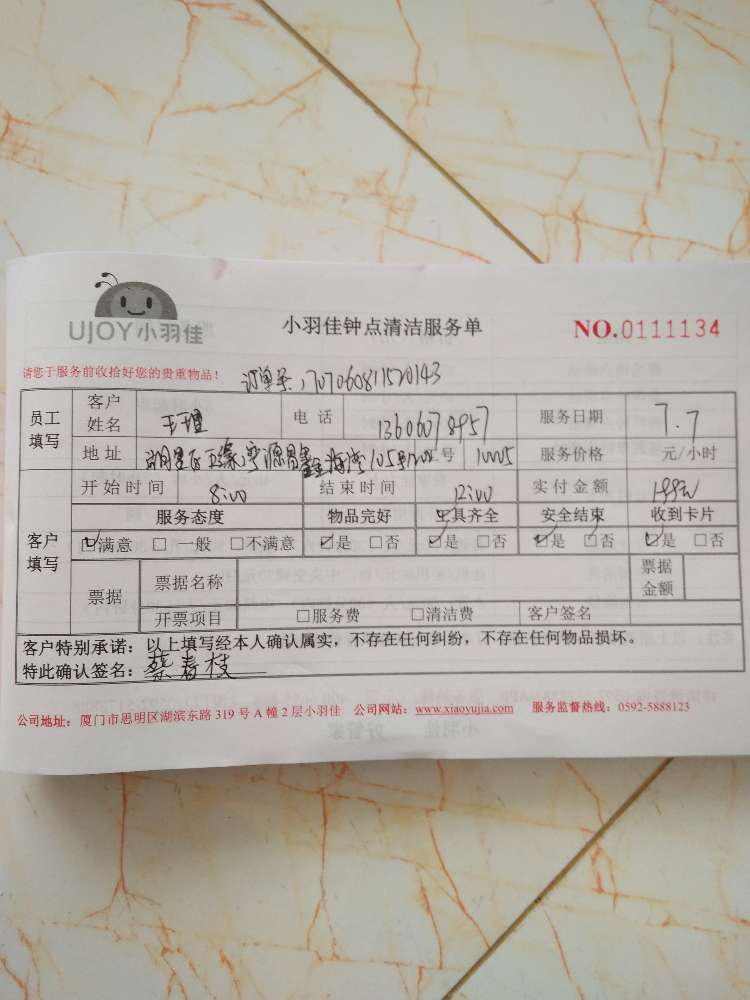 UJOY小羽佳
小羽佳钟点清洁服务单
NO.0111134
请您于服务前收拾好您的贵重物品！
订单号：170706081520143
员工填写 客户姓名 王 电话 1360678957 服务日期 7.7
地址 湖里区 源昌鑫海湾105号 号 10005 服务价格 元/小时
客户填写 开始时间 8:00 结束时间 12:00 实付金额 199元
服务态度 物品完好 工具齐全 安全结束 收到卡片
☑满意 □一般 □不满意 ☑是 □否 ☑是 □否 ☑是 □否 ☑是 □否
票据 票据名称 票据金额
开票项目 □服务费 □清洁费 客户签名
客户特别承诺：以上填写经本人确认属实，不存在任何纠纷，不存在任何物品损坏。
特此确认签名：蔡春枝
公司地址：厦门市思明区湖滨东路 319 号 A 幢 2 层小羽佳 公司网站：www.xiaoyujia.com 服务监督热线：0592-5888123